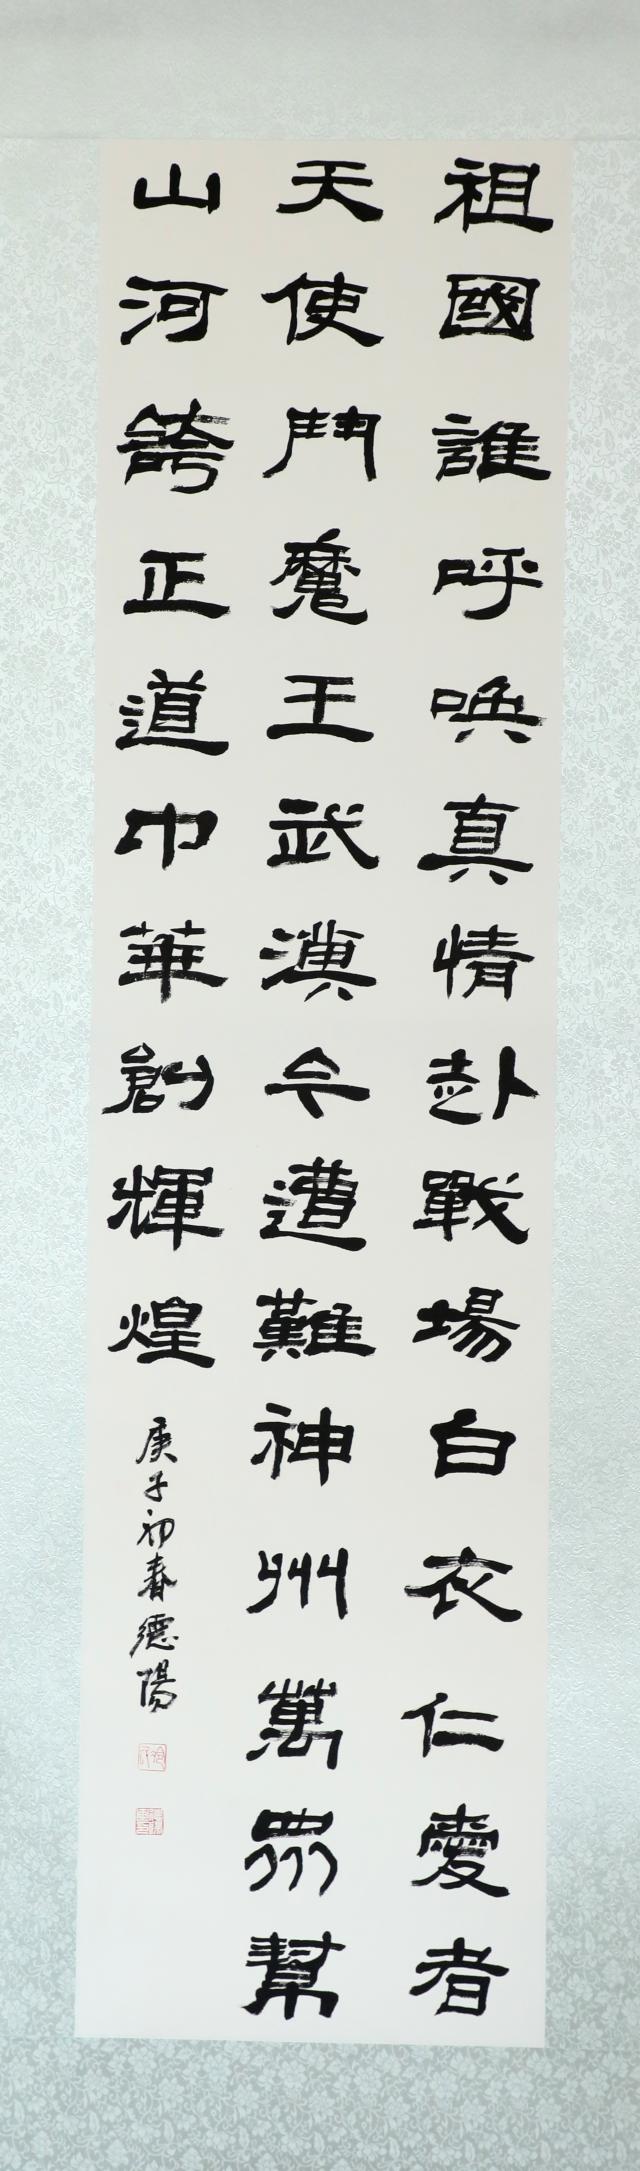 祖國誰呼唤真情赴戰場白衣仁愛者
天使鬥魔王武漢今遭難神州萬眾幫
山河誇正道中華創輝煌
庚子初春德陽